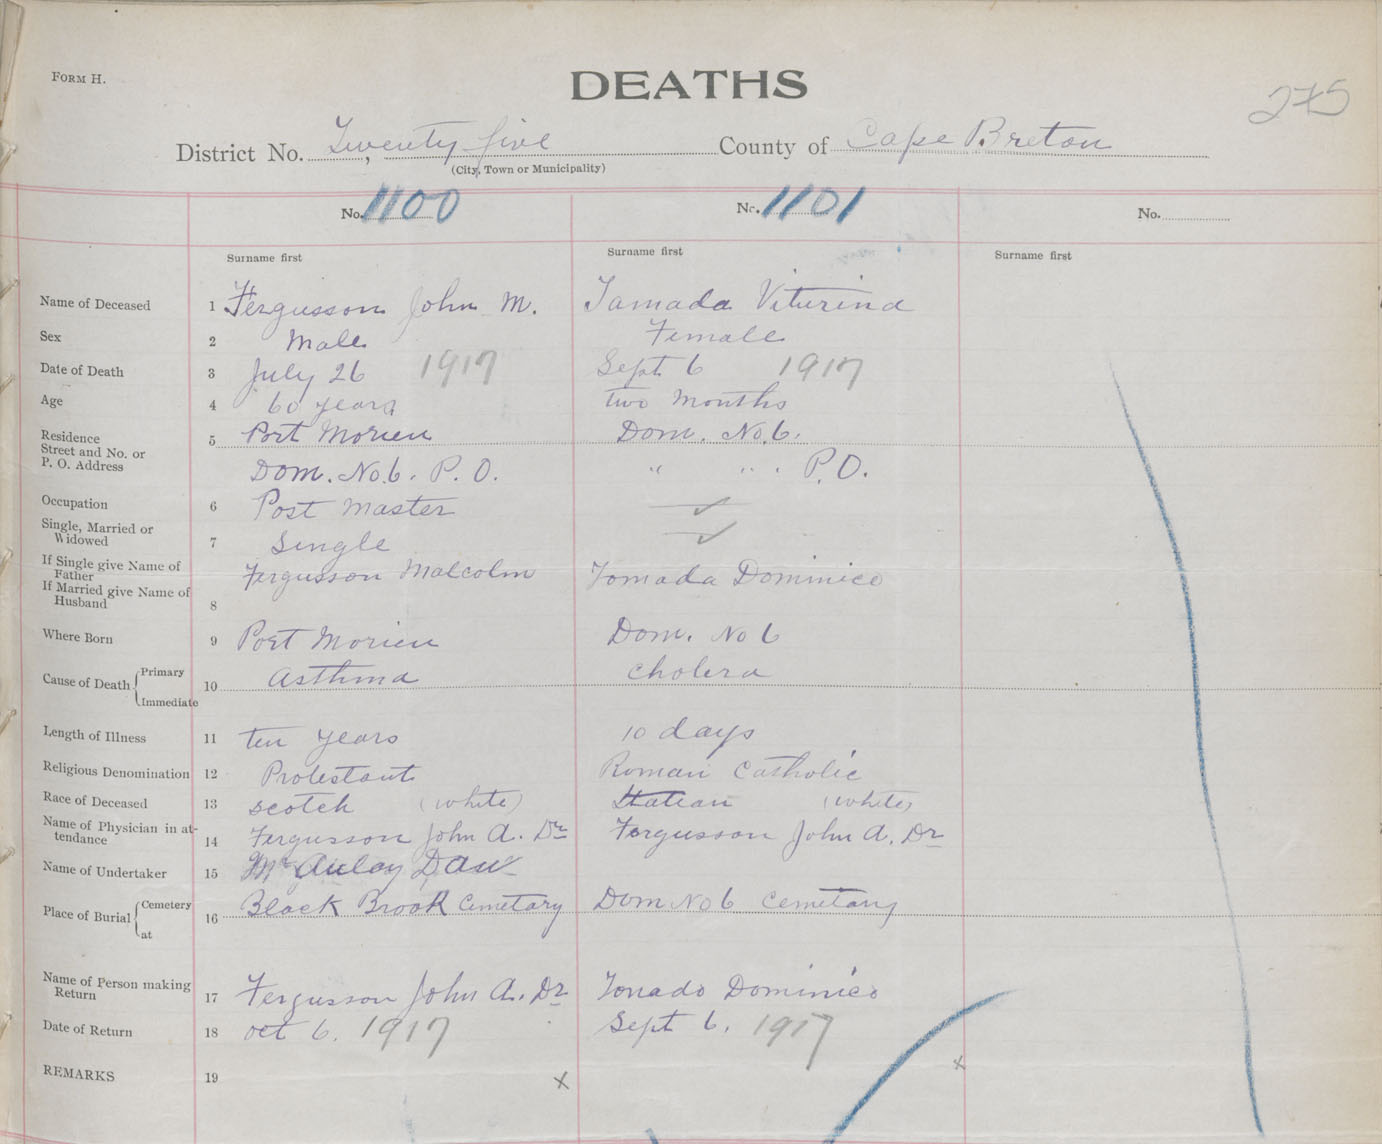 FORM H.
DEATHS
275
District No. Twenty five County of Cape Breton
(City, Town or Municipality)
No. 1100 No. 1101 No.
Surname first Surname first Surname first
Name of Deceased 1 Fergusson John M. Tamada Viturina
Sex 2 Male Female
Date of Death 3 July 26 1917 Sept 6 1917
Age 4 60 years two months
Residence 5 Port Morien Dom. No. 6.
Street and No. or
P. O. Address Dom. No. 6. P. O. " " . P.O.
Occupation 6 Post Master
Single, Married or
Widowed 7 Single
If Single give Name of
Father Fergusson Malcolm Tomada Dominico
If Married give Name of
Husband 8
Where Born 9 Port Morien Dom. No 6
Cause of Death { Primary
Immediate 10 Asthma cholera
Length of Illness 11 ten years 10 days
Religious Denomination 12 Protestant Roman Catholic
Race of Deceased 13 scotch (white) Italian (white)
Name of Physician in at-
tendance 14 Fergusson John A. Dr Fergusson John A. Dr
Name of Undertaker 15 McAulay Dan
Place of Burial { Cemetery
at 16 Black Brook Cemetary Dom No 6 Cemetary
Name of Person making
Return 17 Fergusson John A. Dr Tonado Dominico
Date of Return 18 oct 6. 1917 Sept 6. 1917
REMARKS 19 x x